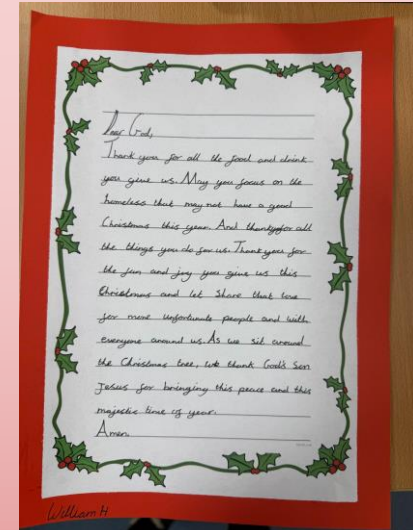 Dear God,
Thank you for all the food and drink
you give us. May you focus on the
homeless that may not have a good
Christmas this year. And thankyou for all
the things you do for us. Thank you for
the fun and joy you give us this
Christmas and let share that love
for more unfortunate people and with
everyone around us. As we sit around
the Christmas tree, we thank God's Son
Jesus for bringing this peace and this
majestic time of year.
Amen.
William H